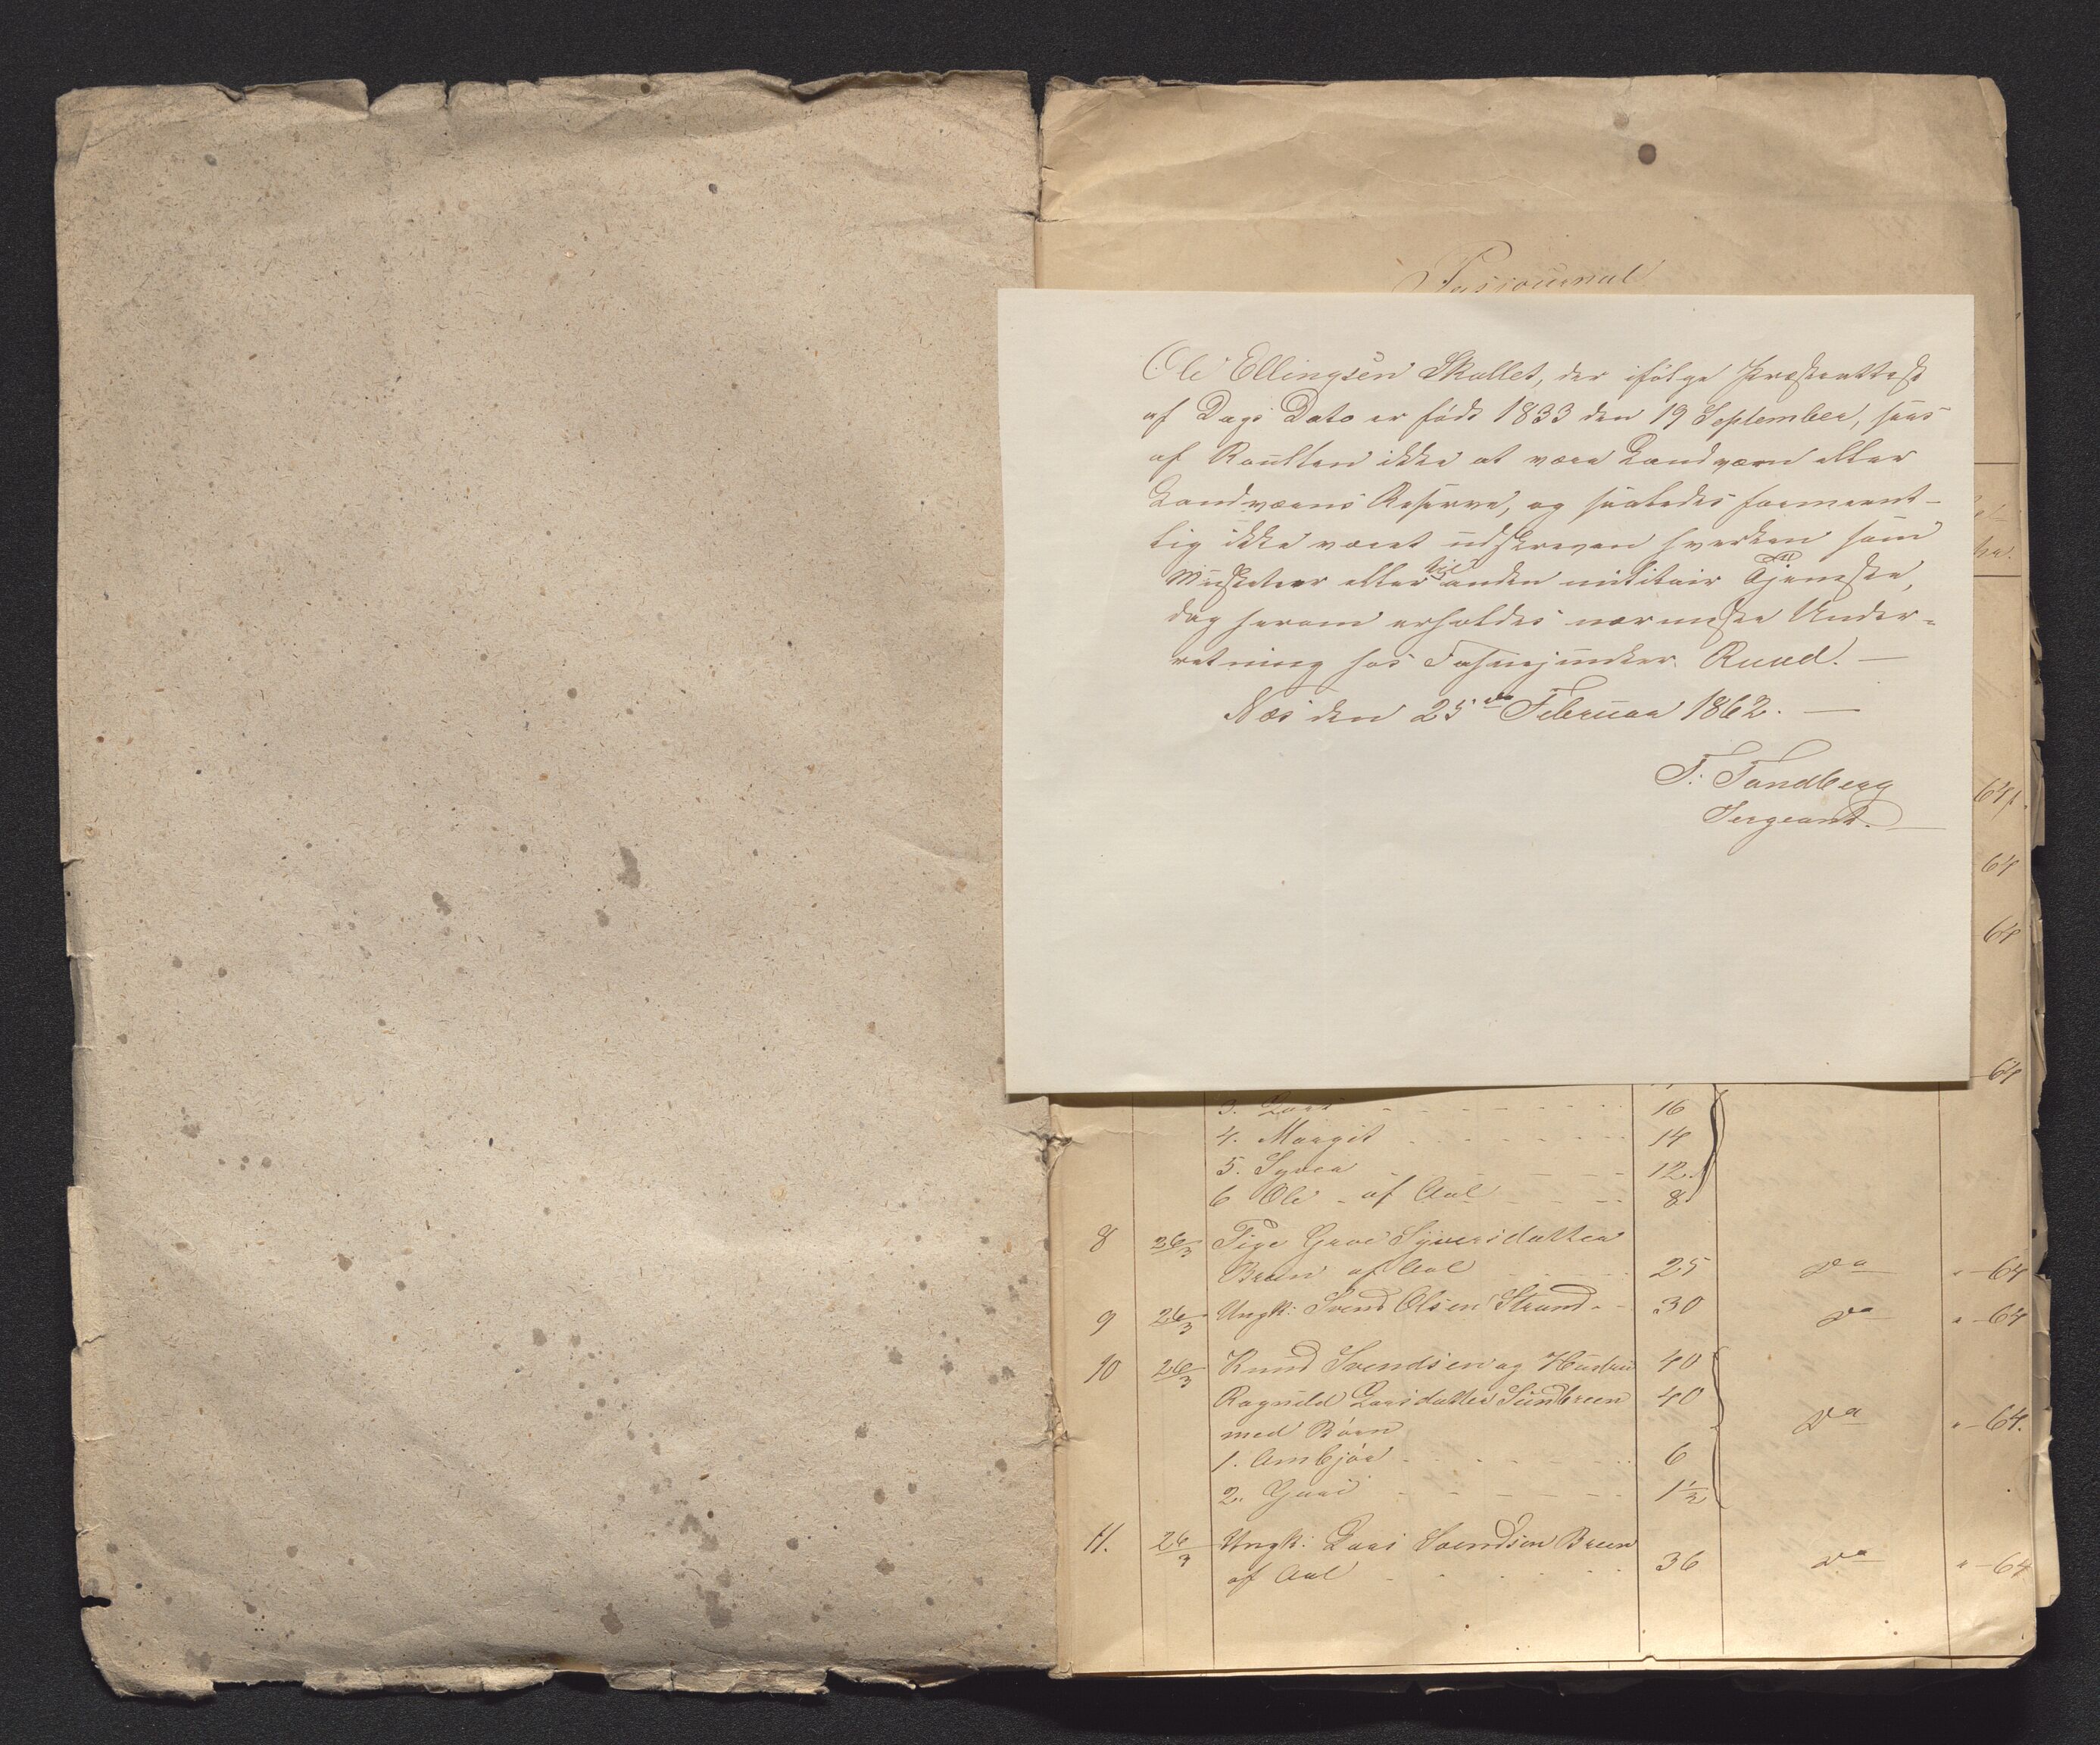 Pasjournal
Ole Ellingsen Skallet, der ifølge Præsteattest
af Dags Dato er født 1833 den 19 September, sees
af Roullen ikke at være Landværn eller
Landværns Reserve, og saaledes formeent-
lig ikke været udskreven hverken som
Musketeer eller til anden militair Tjeneste,
dog herom erholdes nærmeste Under-
retning hos Fahnejunker Ruud. —
Næs den 25de Februar 1862. —
T. Sandberg
Sergeant. —
64
64
64
64
3. Lars 16
4. Margit 14
5. Syver 12
6 Ole - af Aal 8
8 26/3 Pige Groe Syversdatter
Breen af Aal 25 Do " - 64
9 26/3 Ungk: Svend Olsen Strand 30 Do " - 64
10 26/3 Knud Svendsen og Hustru 40
Ragnild Larsdatter Sundbreen 40
med Børn Do " - 64.
1. Ambjør 6
2. Guri 1 1/2
11. 26/3 Ungk: Lars Svendsen Breen
af Aal 36 Do " - 64